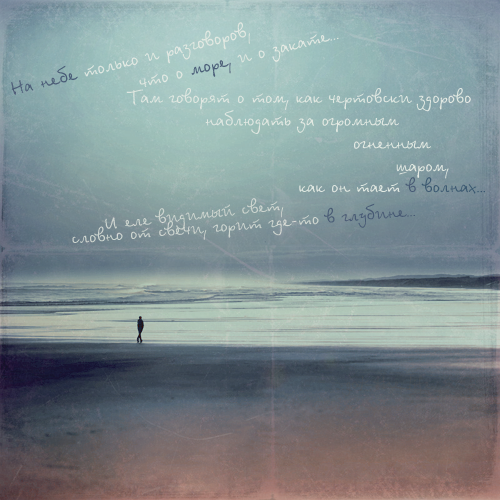 На небе только и разговоров,
что о море, и о закате...
Там говорят о том, как чертовски здорово
наблюдать за огромным
огненным
шаром,
как он тает в волнах...
И еле видимый свет,
словно от свечи, горит где-то в глубине...